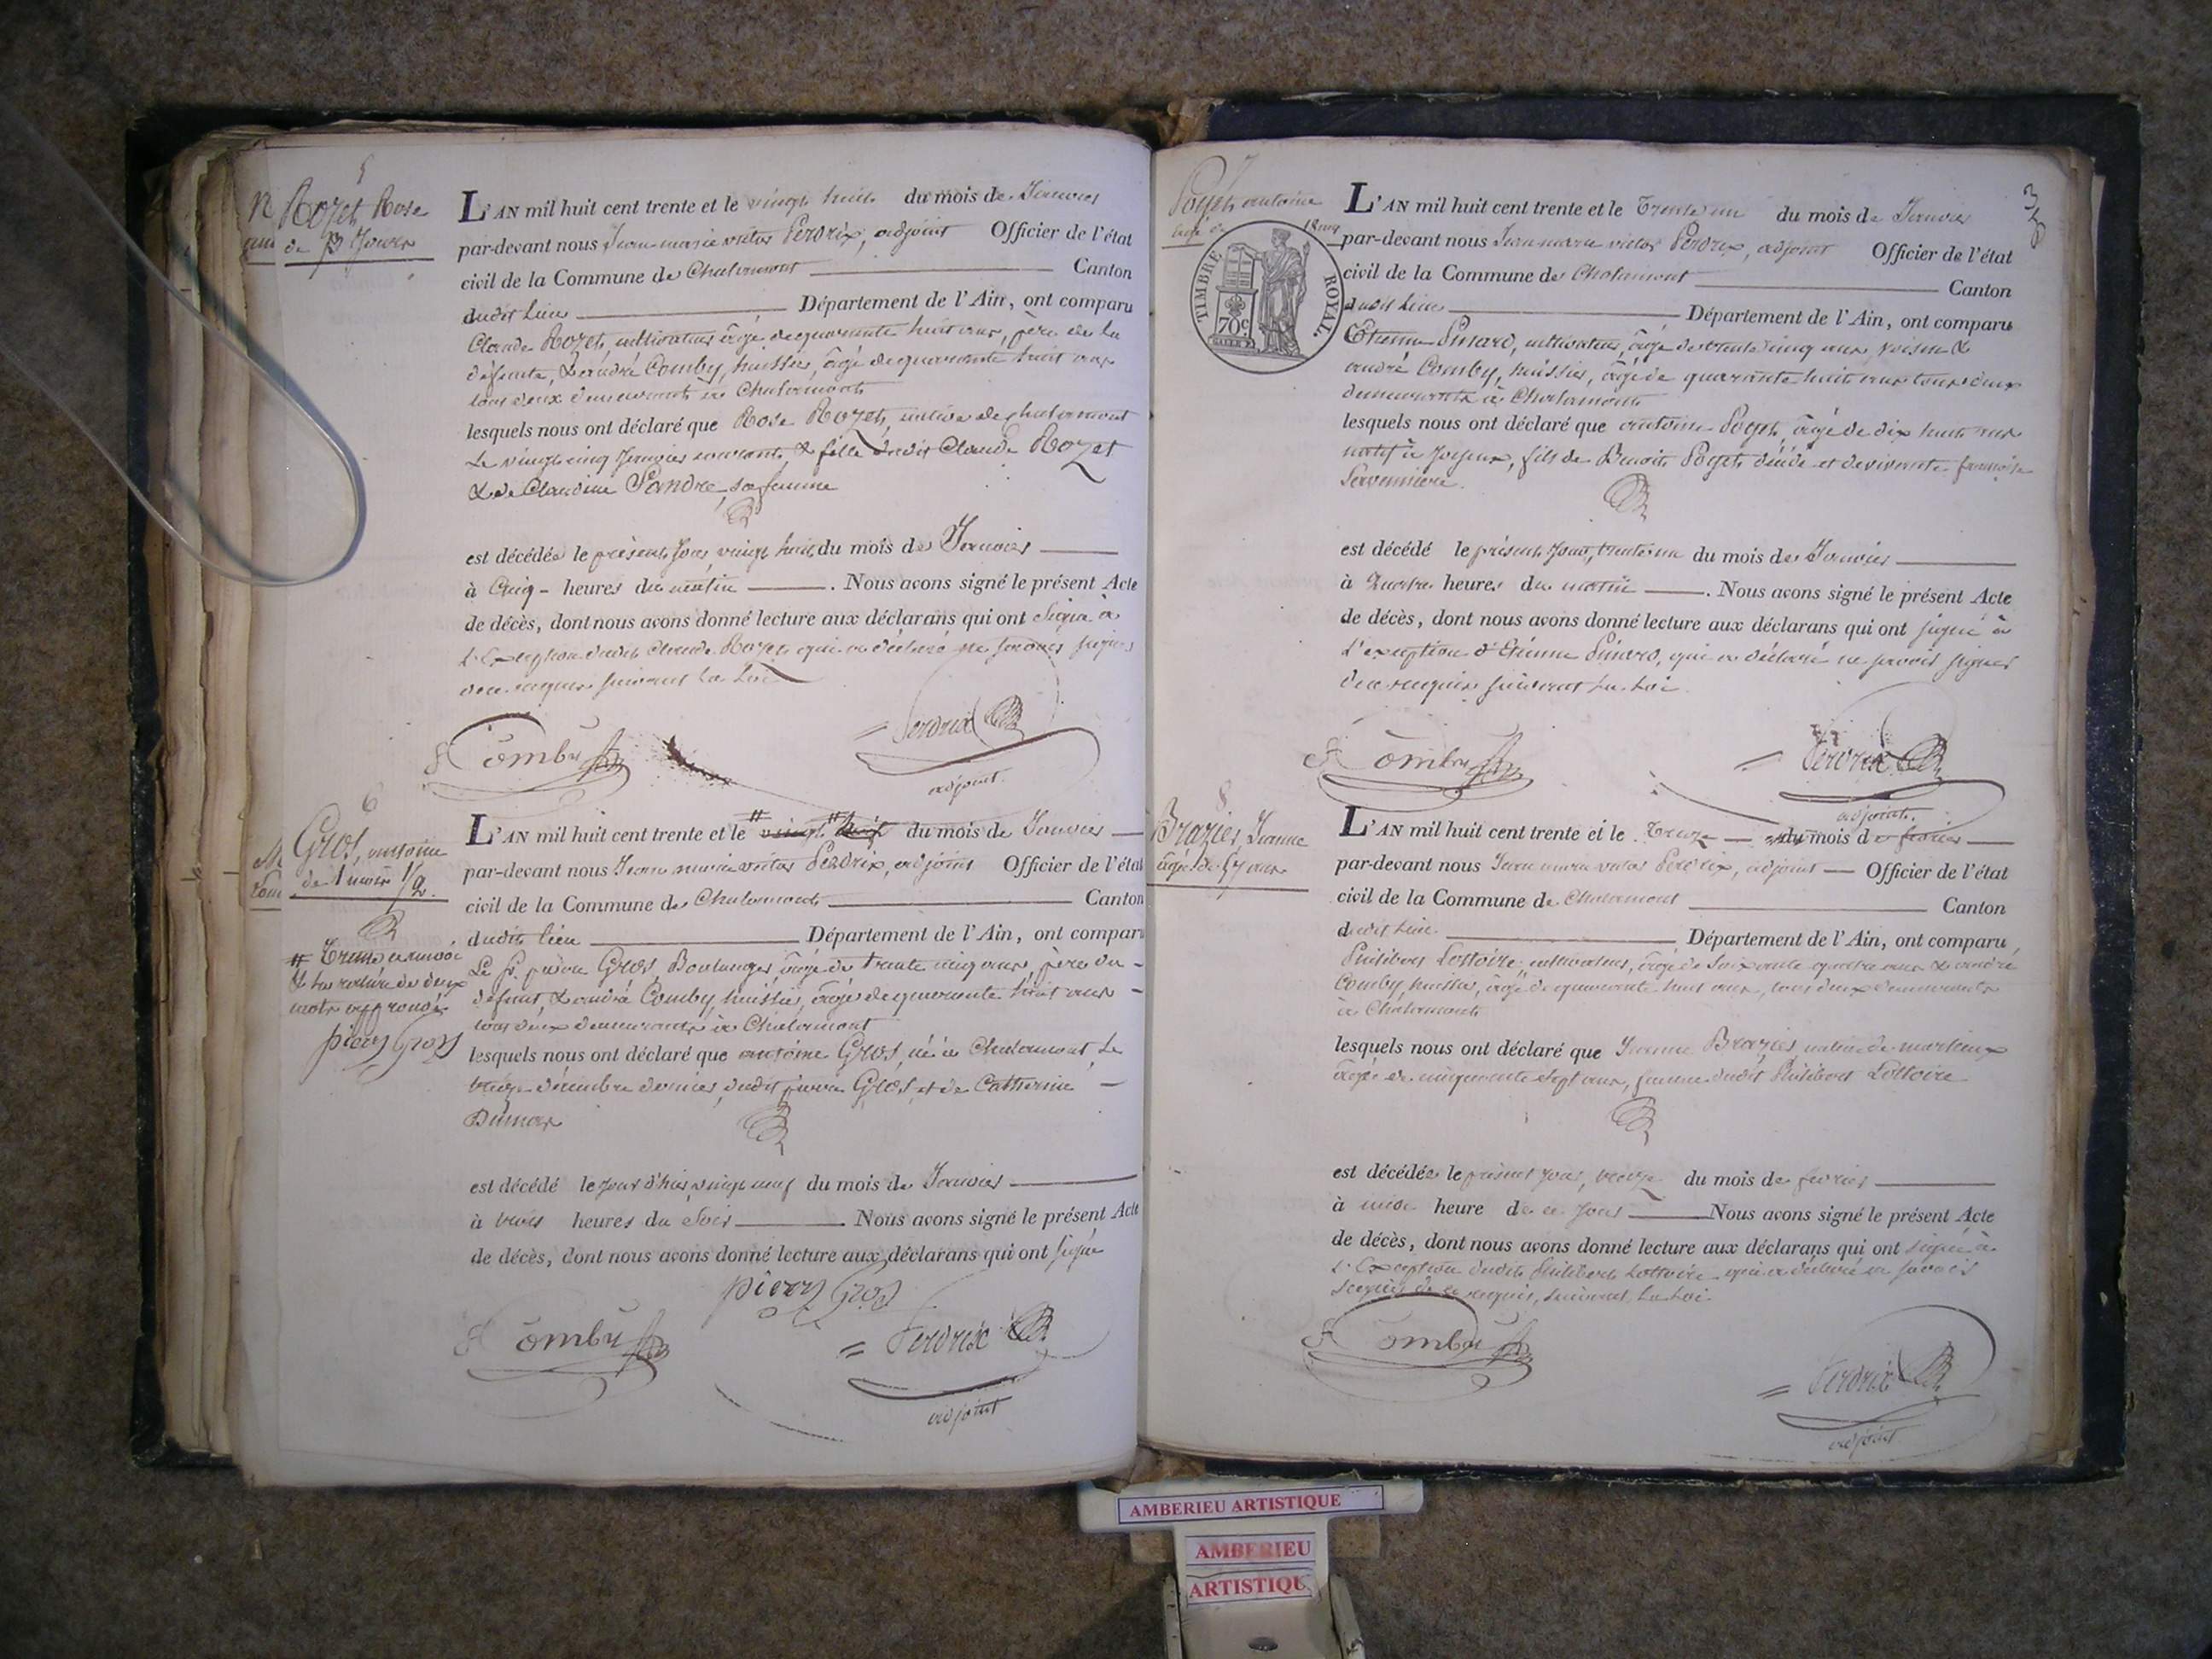 5
Rozet Rose
de 3 Jours
L'AN mil huit cent trente et le vingt huit du mois de Janvier
par-devant nous Jean-marie victor Perdrix, adjoint Officier de l'état
civil de la Commune de Chalamont Canton
dudit lieu Département de l'Ain, ont comparu
Claude Rozet, cultivateur âgé de quarante huit ans, père de la
défunte, & andré Comby, huissier, âgé de quarante huit ans
tous deux demeurants à Chalamont
lesquels nous ont déclaré que Rose Rozet, native de chalamont
le vingt cinq Janvier courant, & fille dudit Claude Rozet
& de Claudine Pandre, sa femme
est décédée le présent Jour, vingt huit du mois de Janvier
à Cinq heures du matin . Nous avons signé le présent Acte
de décès, dont nous avons donné lecture aux déclarans qui ont signé à
l'Exception dudit Claude Rozet qui a déclaré ne savoir signer
de ce requis suivant la Loi
Comby
Perdrix
adjoint
6
Gros, antoine
de 1 mois 1/2
# Trente
& la rature de deux
mots approuvée
pierre Gros
L'AN mil huit cent trente et le # vingt huit du mois de Janvier
par-devant nous Jean marie victor Perdrix, adjoint Officier de l'état
civil de la Commune de Chalamont Canton
dudit lieu Département de l'Ain, ont comparu
Le Sr. pierre Gros Boulanger, âgé de trente cinq ans, père du
défunt, & andré Comby, huissier, âgé de quarante huit ans
tous deux demeurants à Chalamont
lesquels nous ont déclaré que antoine Gros, né à Chalamont, le
treize décembre dernier, dudit pierre Gros, et de Catherine
Dumas
est décédé le jour d'hier, vingt neuf du mois de Janvier
à trois heures du soir Nous avons signé le présent Acte
de décès, dont nous avons donné lecture aux déclarans qui ont signé
pierre Gros
Comby
Perdrix
adjoint
Poyet, antoine
18 ans
TIMBRE ROYAL.
70c
35
L'AN mil huit cent trente et le Trente un du mois de Janvier
par-devant nous Jean marie victor Perdrix, adjoint Officier de l'état
civil de la Commune de Chalamont Canton
dudit lieu Département de l'Ain, ont comparu
Etienne Pinard, cultivateur, âgé de trente cinq ans, voisin &
andré Comby, huissier, âgé de quarante huit ans tous deux
demeurants à Chalamont
lesquels nous ont déclaré que antoine Poyet, âgé de dix huit ans
natif à Joyeux, fils de Benoit Poyet, décédé et de vivante françoise
Servonniere.
est décédé le présent Jour, trente un du mois de Janvier
à Quatre heures du matin . Nous avons signé le présent Acte
de décès, dont nous avons donné lecture aux déclarans qui ont signé à
l'exception d'Etienne Pinard, qui a déclaré ne savoir signer
de ce requis suivant la Loi
Comby
Perdrix
adjoint.
8
Brazier, Jeanne
âgée de 57 ans
L'AN mil huit cent trente et le Treize du mois de fevrier
par-devant nous Jean marie victor Perdrix, adjoint Officier de l'état
civil de la Commune de Chalamont Canton
dudit lieu Département de l'Ain, ont comparu
Philibert Lottoire, cultivateur, âgé de soixante quatre ans & andré
Comby, huissier, âgé de quarante huit ans, tous deux demeurants
à Chalamont
lesquels nous ont déclaré que Jeanne Brazier native de marlieux
âgée de cinquante sept ans, femme dudit Philibert Lottoire
est décédée le présent Jour, treize du mois de fevrier
à heure de ce jour Nous avons signé le présent Acte
de décès, dont nous avons donné lecture aux déclarans qui ont signé à
l'Exception dudit Philibert Lottoire qui a déclaré ne savoir
de ce requis, suivant la Loi.
Comby
Perdrix
adjoint
AMBERIEU ARTISTIQUE
AMBERIEU
ARTISTIQU